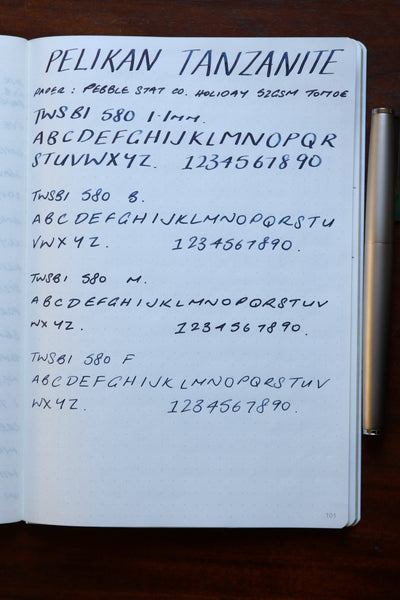 PELIKAN TANZANITE
PAPER : PEBBLE STAT CO. HOLIDAY 52GSM TOMOE
TWSBI 580 1.1mm.
ABCDEFGHIJKLMNOPQR
STUVWXYZ. 1234567890
TWSBI 580 B.
ABCDEFGHIJKLMNOPQRSTU
VWXYZ. 1234567890.
TWSBI 580 M.
ABCDEFGHIJKLMNOPQRSTUV
WXYZ. 1234567890.
TWSBI 580 F
ABCDEFGHIJKLMNOPQRSTUV
WXYZ. 1234567890.
101